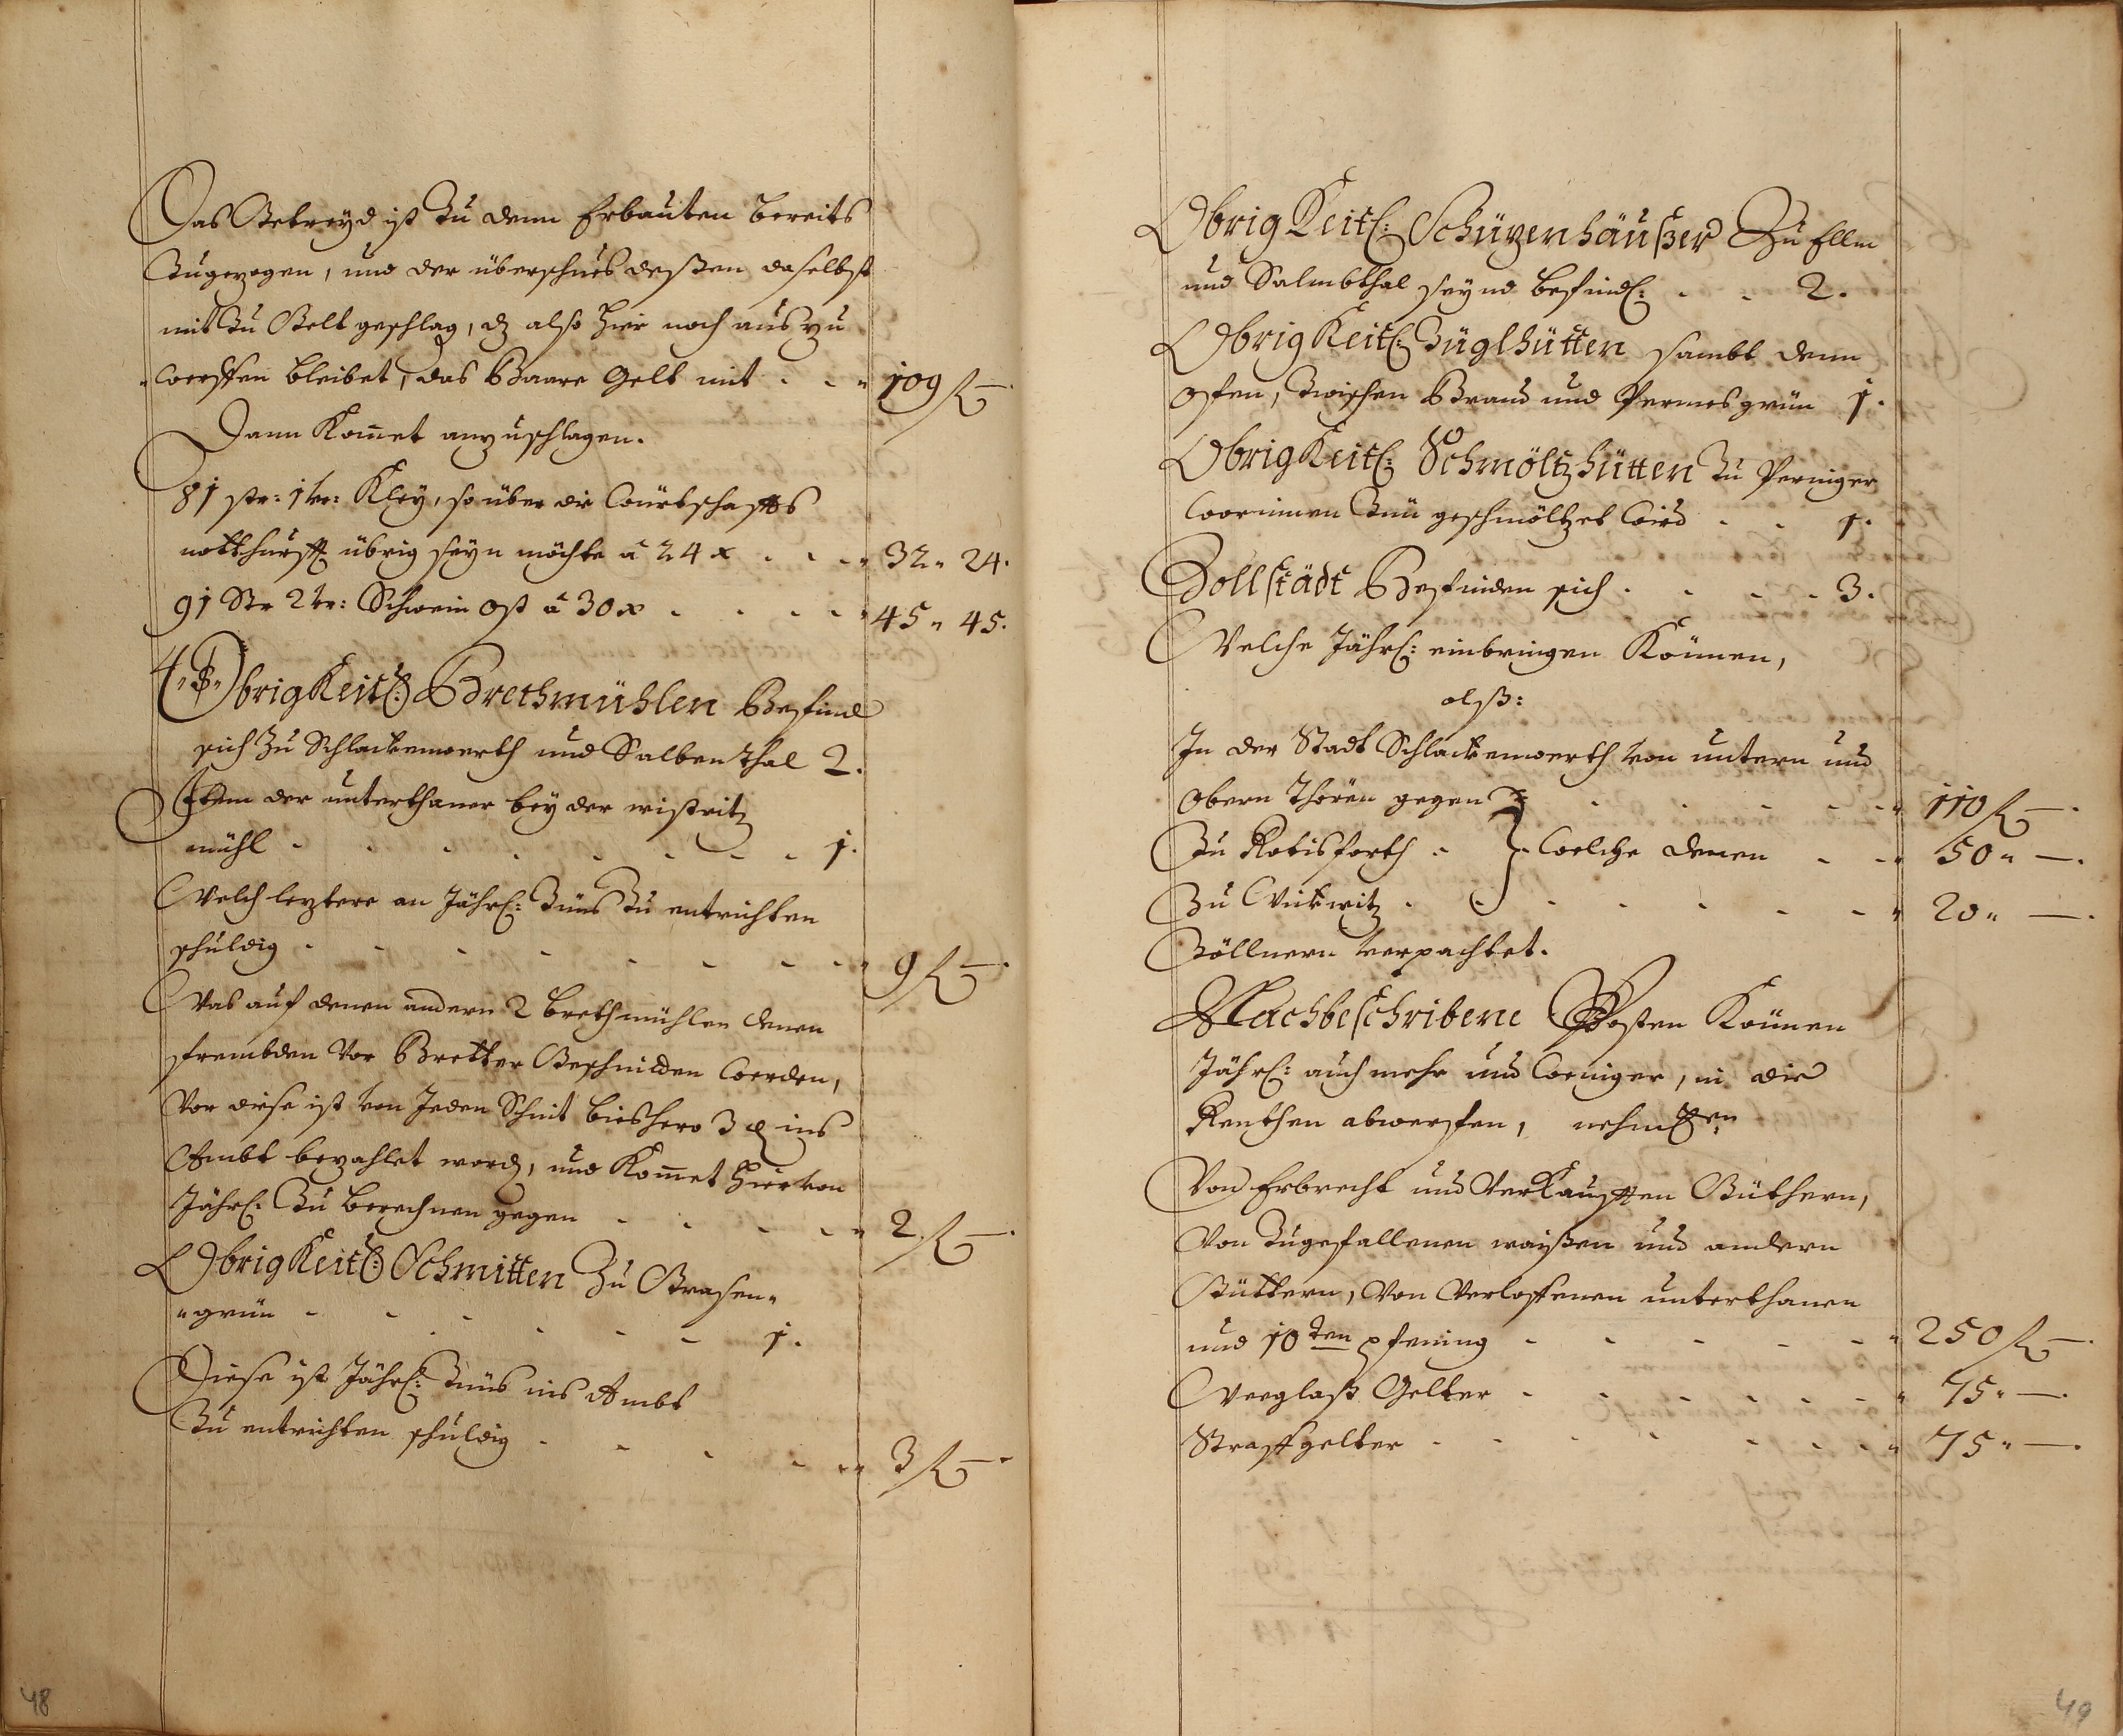 Das Getreyd ist Zu denn Erbauten bereits
Zugezogen, und der überschues deßen daselbst
mit Zu Gelt geschlag, dz also hier noch aus zu
werffen bleibet, das Baare Gelt mit - - " 109 f —.
Dann Kom̄et anzuschlagen.
81 str: 1 vr: Kley, so über die Würtschaffts
notthurfft übrig seyn möchte â 24 x - - - " 32 " 24.
91 Str 2 vr: Schwein ost â 30 x - - - - " 45 " 45.
ObrigKeitl: Brethmühlen Befind
sich Zu Schlackenwerth und Salbenthal 2.
Item der unterthaner bey der wistritz
mühl - - - - - - - - 1.
Welch leztere an Jährl: Zins Zu entrichten
schuldig - - - - - - - - " 9 f —.
Was auf denen andern 2 brethmühlen denen
frembden Vor Bretter Geschnidten werden,
Vor diese ist von Jeden Schnit bieshero 3 ₰ ins
Ambt bezahlet word, und Kom̄et hiervon
Jährl: Zu berechnen gegen - - - - " 2 f —.
ObrigKeitl: Schmitten Zu Grasen "
" grün - - - - - - 1.
Diese ist Jährl: Zins ins Ambt
Zu entrichten schuldig - - - - " 3 f —.
48
ObrigKeitl: Schüzenhäußer Zu Ellm
und Salmbthal seynd befindl: - - 2.
ObrigKeitl: Züglhütten sambt denn
ofen, Zwischen Brand und Permesgrün 1.
ObrigKeitl: Schmöltzhütten Zu Perniger
worinnen Zin geschmöltzet wird - - 1.
Zollstädt Befinden sich - - - - 3.
Welche Jährl: einbringen Können,
alß:
In der Stadt Schlackenwerth von untern und
obern Thoren gegen - - - - - " 110 f —.
Zu Rotisforth - } welche denen - - " 50 " —.
Zu Wickwitz - - - - - - " 20 " —.
Zöllnern verpachtet.
Nachbeschribene Posten Können
Jährl: auch mehr und weniger, in die
Renthen abwerffen, nehmlen
Von Erbrecht und verKaufften Güthern,
Von Zugefallenen waißen und andern
Güttern, Von verloffenen unterthanen
und 10 ten pfening - - - - - " 250 f —.
Weeglaß Gelter - - - - - - " 75 " —.
Straffgelter - - - - - - - " 75 " —.
49